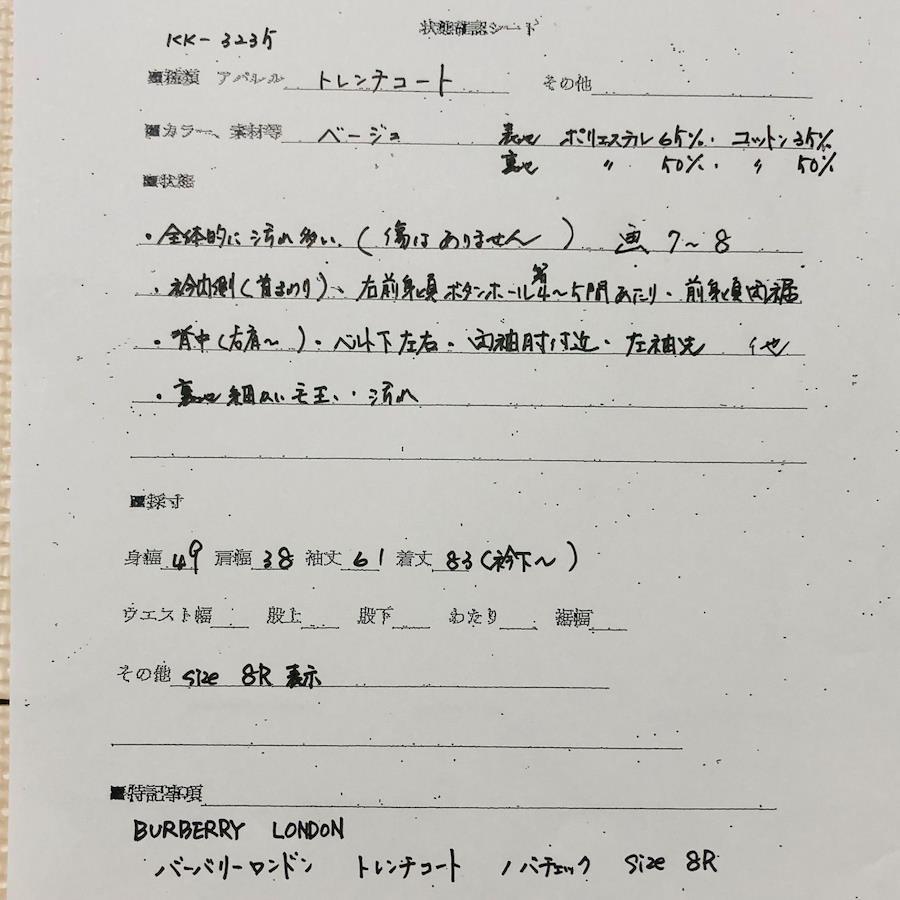 状態確認シート
KK-3235
■種類 アパレル トレンチコート その他
■カラー、素材等 ベージュ 表地 ポリエステル65%・コットン35%
裏地 〃 50%・〃 50%
■状態
・全体的に汚れ多い、(傷はありません) 画 7〜8
・衿内側(首まわり)、右前身頃ボタンホール第4〜5間あたり・前身頃内裾
・背中(右肩〜)・ベルト下左右・両袖肘付近・左袖先 他
・裏地細かい毛玉・汚れ
■採寸
身幅 49 肩幅 38 袖丈 61 着丈 83(衿下〜)
ウエスト幅 股上 股下 わたり 裾幅
その他 size 8R 表示
■特記事項
BURBERRY LONDON
バーバリーロンドン トレンチコート ノバチェック size 8R